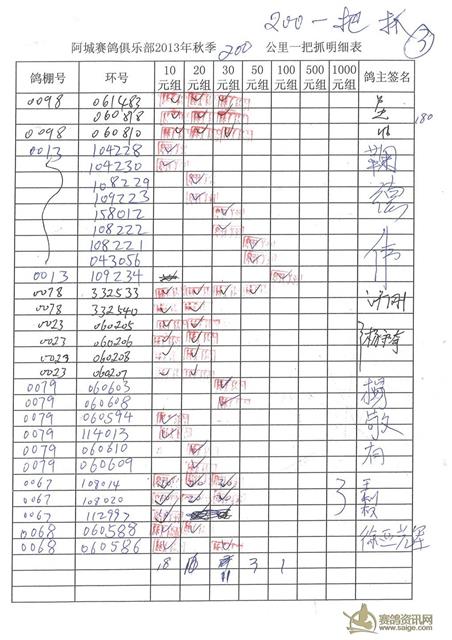 200一把抓
③
阿城赛鸽俱乐部2013年秋季200公里一把抓明细表
鸽棚号 环号 10元组 20元组 30元组 50元组 100元组 500元组 1000元组 鸽主签名
0098 061483
0098 060818
0098 060810
180
0013 104228 鞠
104230
108229
109223 德
158012
108222
108221 伟
043056
0013 109234
0078 332533
0078 332540
0023 060205
0023 060206
0023 060208
0023 060207
0079 060603 杨
0079 060608
0079 060594 敬
0079 114013
0079 060610 有
0079 060609
0067 108014 王
0067 108020 3 利
0067 112997 权
0068 060588 徐亚
0068 060586
18 3 1
11
赛鸽资讯网
www.saige.com